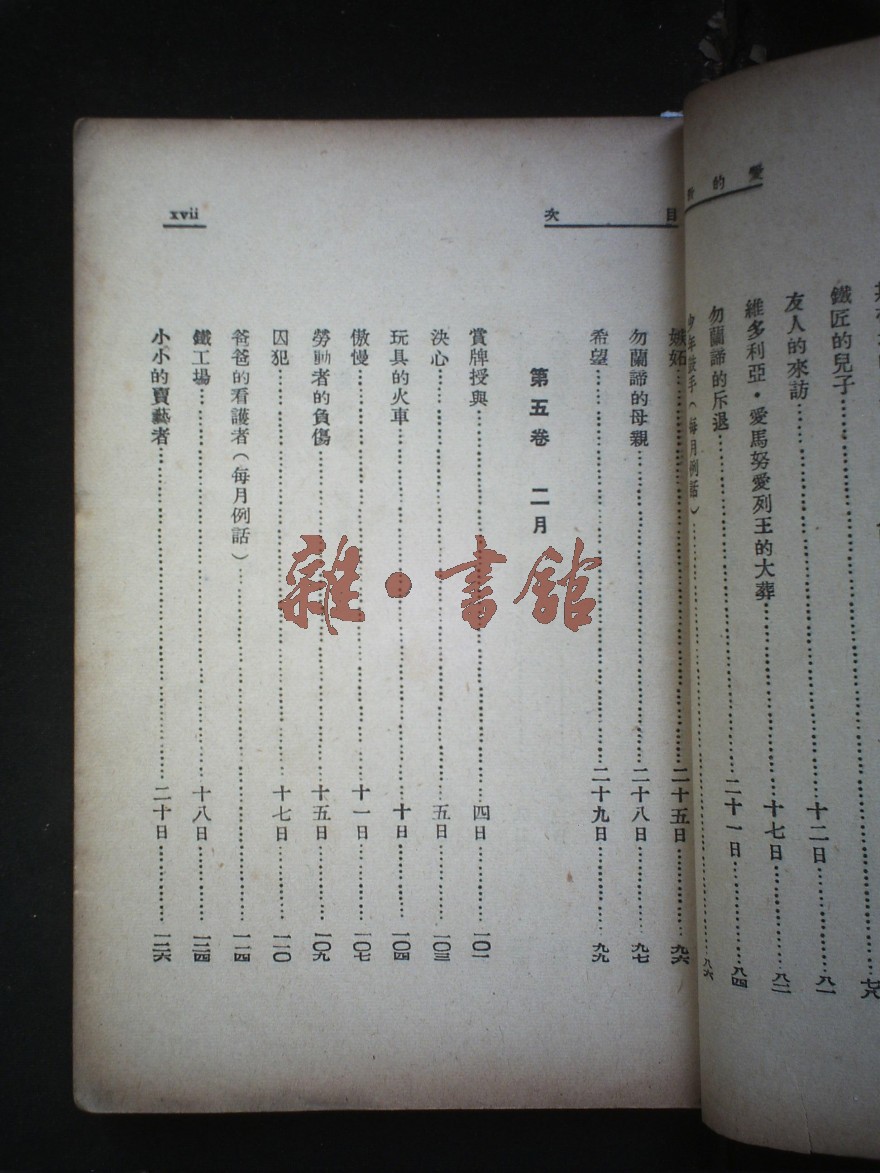 愛的
鐵匠的兒子
友人的來訪……十二日……八一
維多利亞・愛馬努愛列王的大葬……十七日……八二
勿蘭諦的斥退……二十一日……八四
少年鼓手（每月例話）……八六
目次
xvii
嫉妬……二十五日……九六
勿蘭諦的母親……二十八日……九七
希望……二十九日……九九
第五卷 二月
賞牌授與……四日……一〇一
決心……五日……一〇三
玩具的火車……十日……一〇四
傲慢……十一日……一〇七
勞動者的負傷……十五日……一〇九
囚犯……十七日……一一〇
爸爸的看護者（每月例話）……一一四
鐵工場……十八日……一二四
小小的賣藝者……二十日……一二六
雜・書館